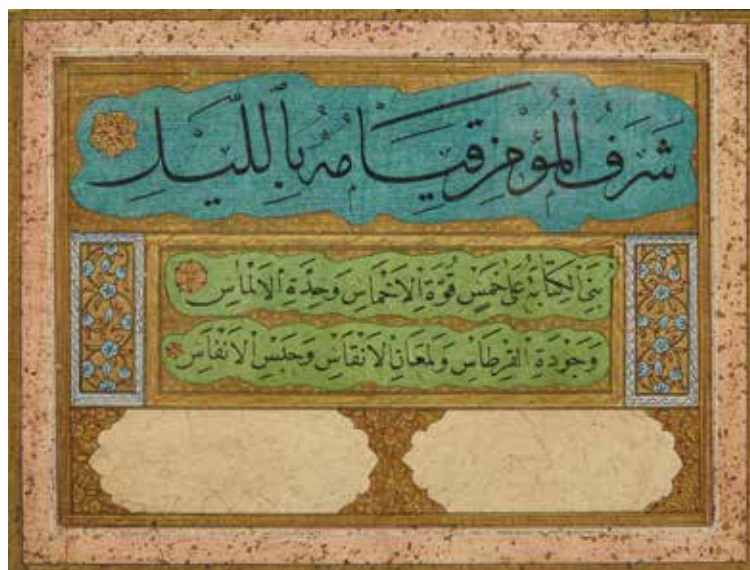 شَرَفُ الْمُؤْمِنِ قِيَامُهُ بِاللَّيْلِ
بُنِيَ الْكِتَابَةُ عَلَى خَمْسٍ قُوَّةِ الْاَخْمَاسِ وَحِدَّةِ الْاَلْمَاسِ
وَجَوْدَةِ الْقِرْطَاسِ وَلَمَعَانِ الْاَنْقَاسِ وَحَبْسِ الْاَنْفَاسِ